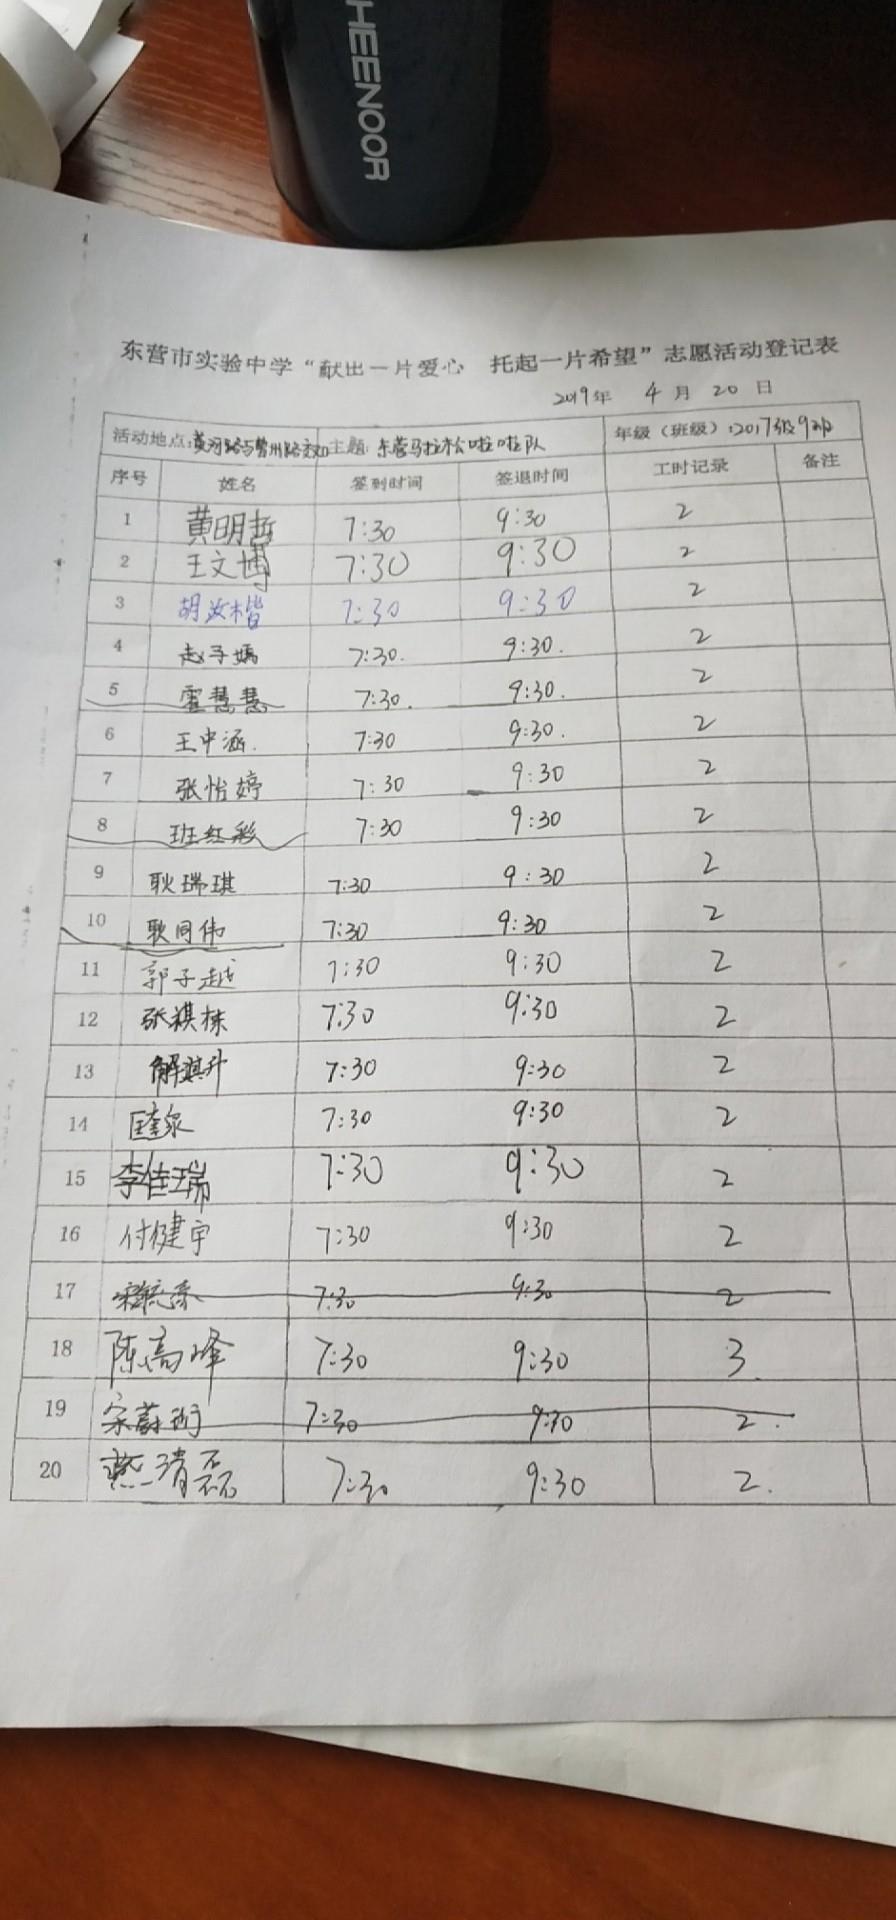 HEENOOR
东营市实验中学“献出一片爱心 托起一片希望”志愿活动登记表
2019年 4月20日
活动地点:黄河路与 主题:东营马拉松啦啦队 年级（班级）:2017级9班
序号 姓名 签到时间 签退时间 工时记录 备注
1 黄明哲 7:30 9:30 2
2 王文博 7:30 9:30 2
3 胡汝楷 7:30 9:30 2
4 赵子嫣 7:30. 9:30. 2
5 霍慧慧 7:30. 9:30. 2
6 王中涵. 7:30 9:30. 2
7 张怡婷 7:30 9:30 2
8 班红彩 7:30 9:30 2
9 耿瑞琪 7:30 9:30 2
10 耿同伟 7:30 9:30 2
11 郭子越 7:30 9:30 2
12 张祺栋 7:30 9:30 2
13 解淇升 7:30 9:30 2
14 7:30 9:30 2
15 李佳瑞 7:30 9:30 2
16 付健宇 7:30 9:30 2
17 7:30 9:30 2
18 陈高峰 7:30 9:30 3
19 7:30 9:30 2.
20 燕清磊 7:30 9:30 2.